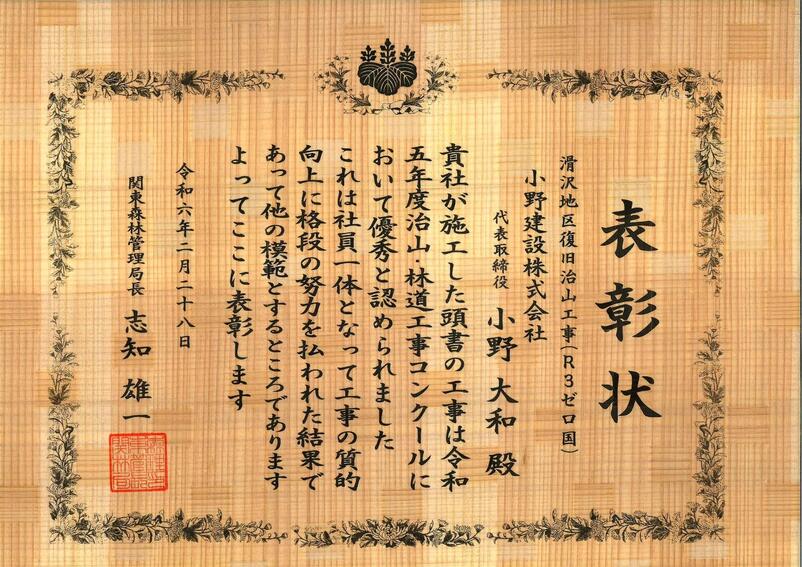 表彰状
滑沢地区復旧治山工事(R3ゼロ国)
小野建設株式会社
代表取締役 小野 大和 殿
貴社が施工した頭書の工事は令和
五年度治山・林道工事コンクールに
おいて優秀と認められました
これは社員一体となって工事の質的
向上に格段の努力を払われた結果で
あって他の模範とするところであります
よってここに表彰します
令和六年二月二十八日
関東森林管理局長 志知 雄一